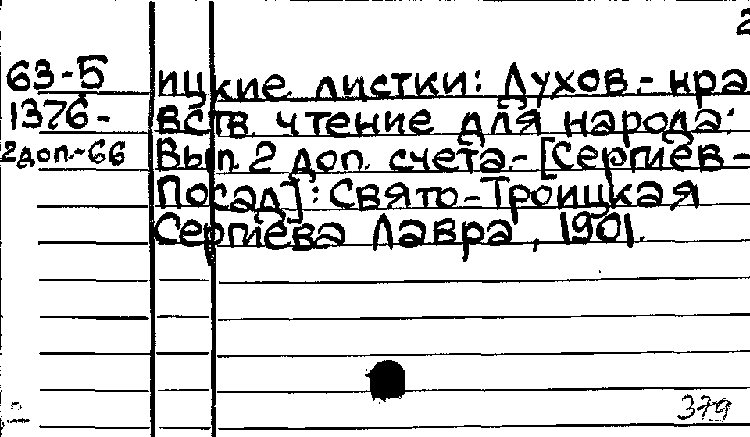 2
63-5 ицкие листки: Духов.-нра
1376- вств. чтение для народа.
2доп.-66 Вып. 2 доп. счета.-[Сергиев-
Посад]: Свято-Троицкая
Сергиева Лавра, 1901.
379